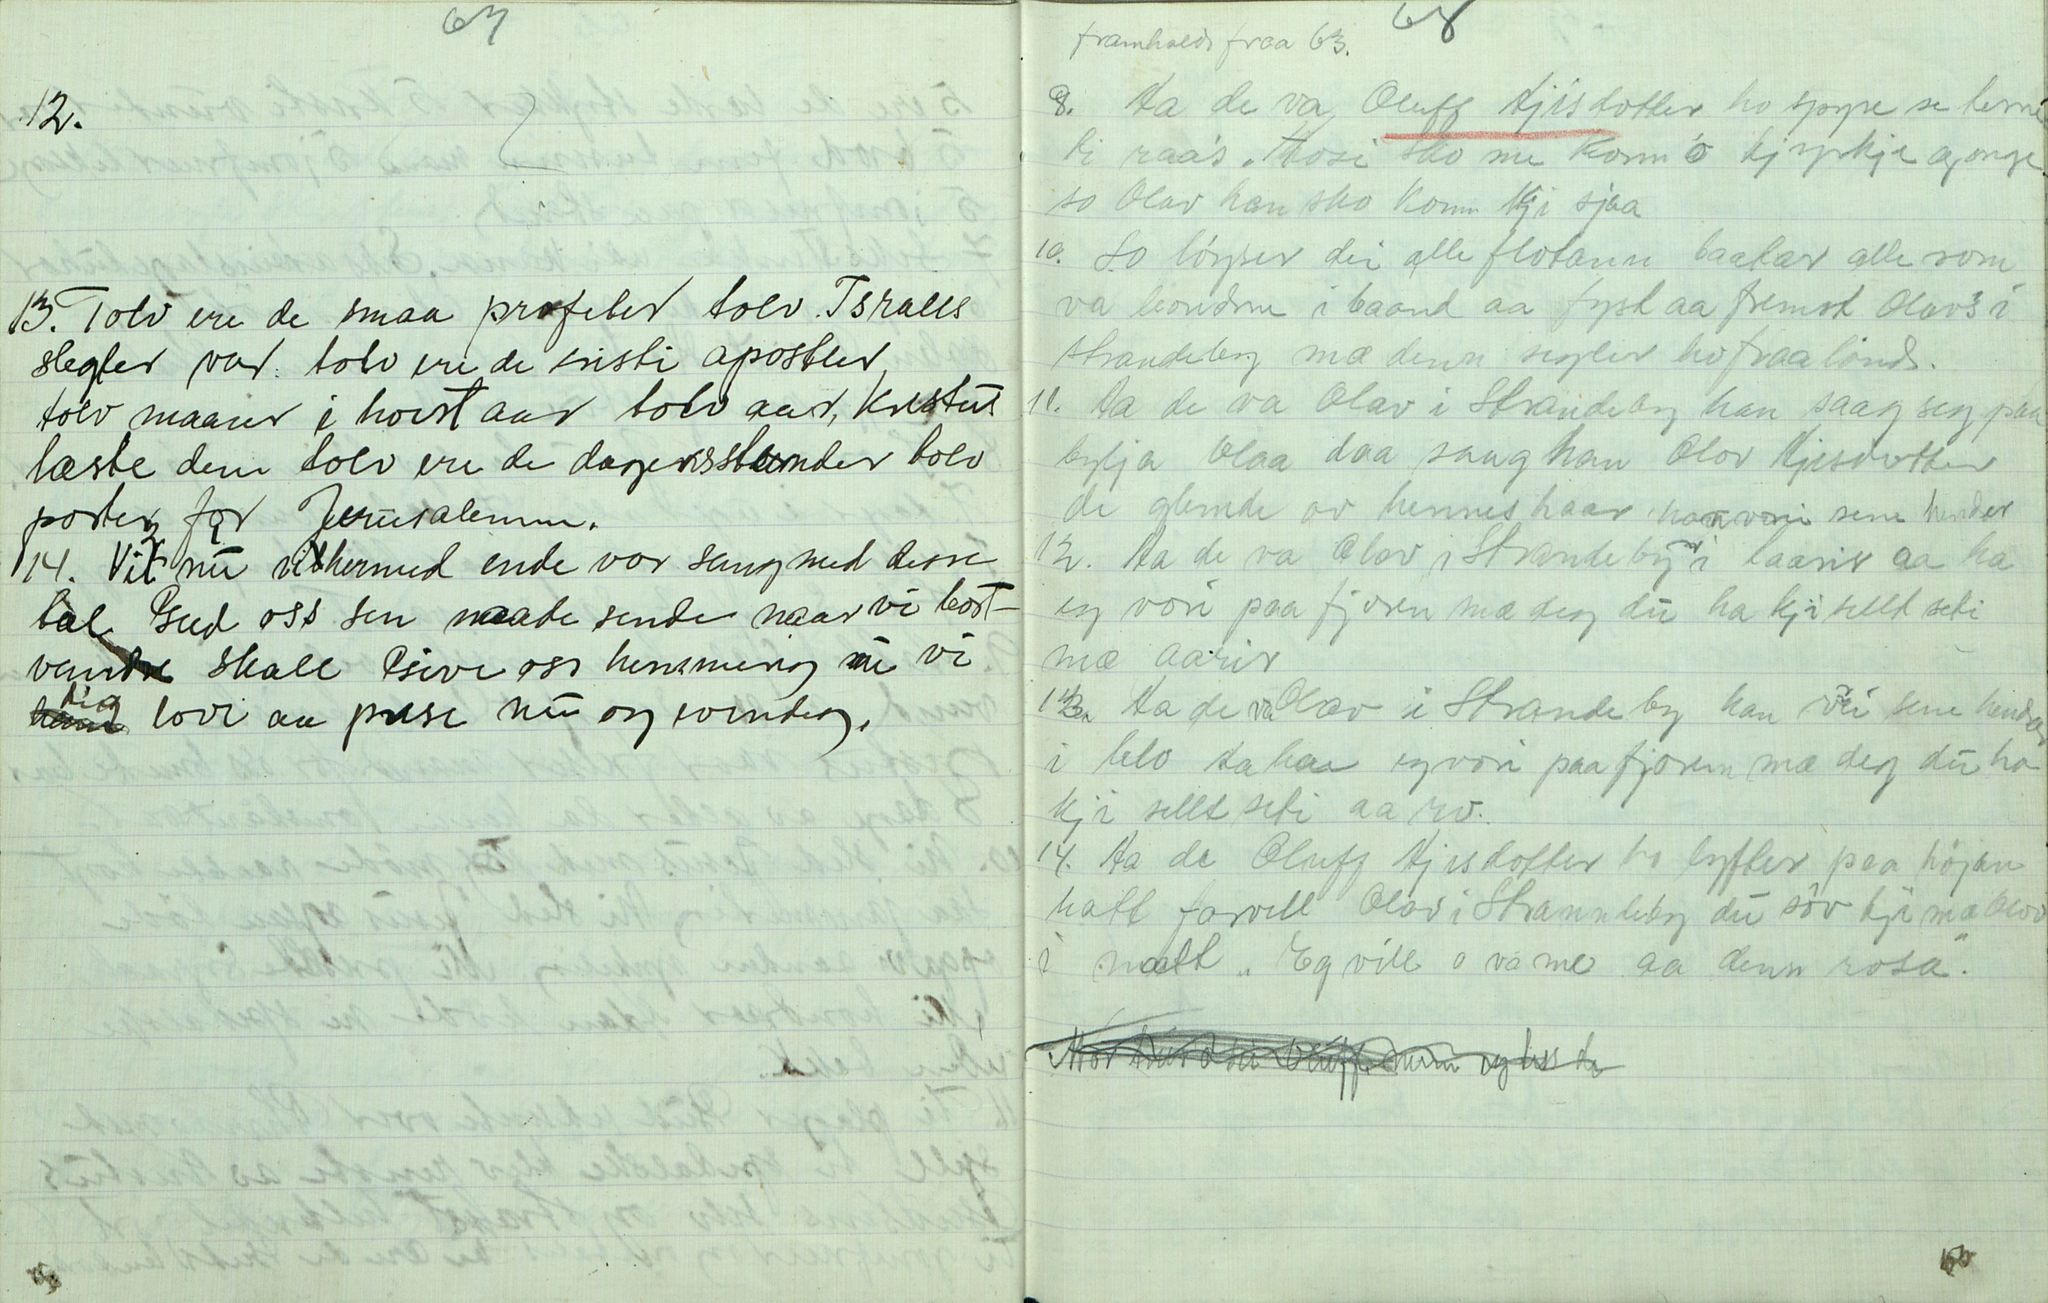 67
12.
13. Tolv ere de smaa profeter tolv Israels
slegter var. tolv ere de kristi apostler
tolv maaner i hvert aar tolv aar, Kristus
læste dem tolv ere de dagensstunder tolv
porter for Jerusalemm.
14. Vil nu vi hermed ende vor sang med desse
tal Gud oss sen naade sende naar vi bort-
vandre skall Give oss hemmerig nu vi
dig love aa prise nu og evindeg.
68
framhald fraa 63.
8. Ta de va Oluff Kjisdotter ho spyre se
ti raas. Mosi sko me kom o kjyrkje gonge
so Olav han sko kom kji sjaa
10. So løyser dei alle flotann baatar alle som
va bondne i baand aa fyst aa fremst Olavs i
Strandeby mæ denn segler ho fraa lond.
11. Ta de va Olav i Strandeby han saag seg paa
bylja blaa daa saag han Olov Kjisdotter
de glemde av hennes haar han vrir sene hender
12. Ta de va Olav i Strandeby i baarir aa ha
eg vori paa fjoren mæ deg du ha kji sellt seti
mæ aarir
13. Ta de va Olav i Strandeby han vri sene hendar
i blo Ta hae eg vori paa fjorenn mæ deg du ha
kji sellt seti aa ro.
14. Ta de Oluff Kjisdotter ho lyfter paa høgan
hatt farvell Olav i Strandeby du søv kji mæ Olov
i natt „ Eg vill o va me aa denn rosa".